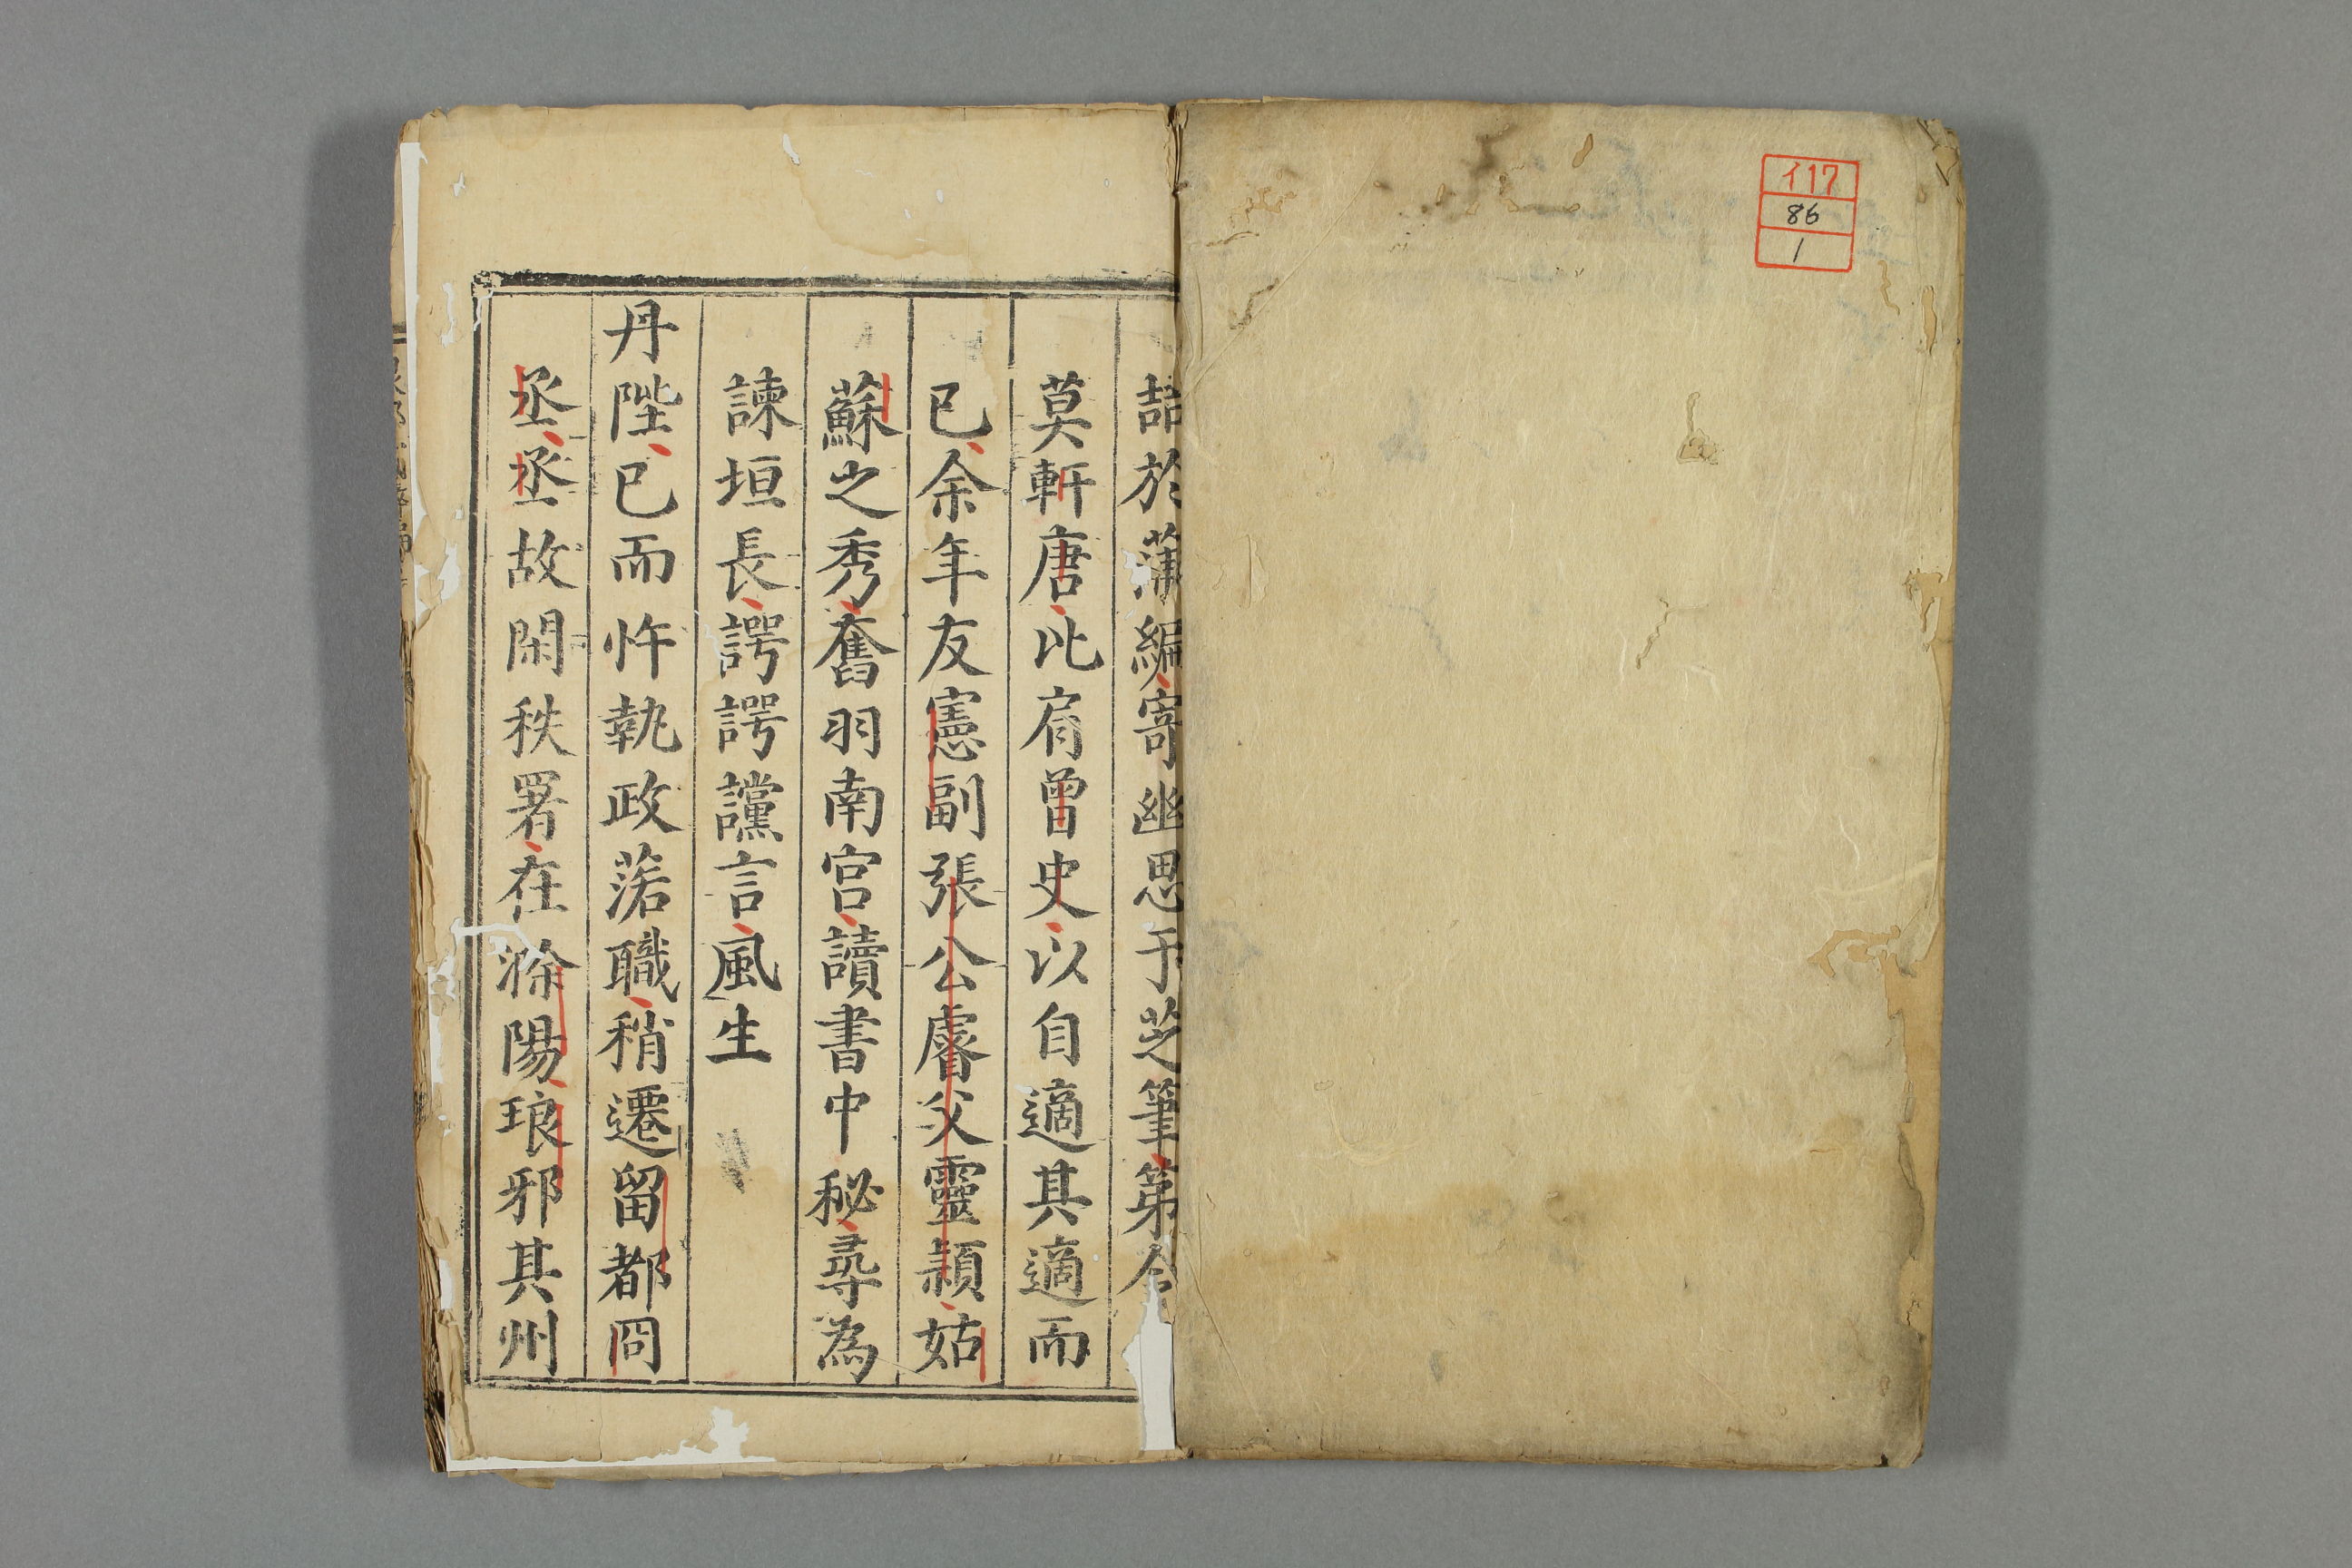 イ17
86
1
喆於蒲編寄幽思于芝筆第令
莫軒唐比肩曾史以自適其適而
已余年友憲副張公睿父靈頴姑
蘇之秀奮羽南宮讀書中秘尋為
諫垣長諤諤讜言風生
丹陛已而忤執政落職稍遷留都冏
丞丞故閑秩署在滁陽琅邪其州